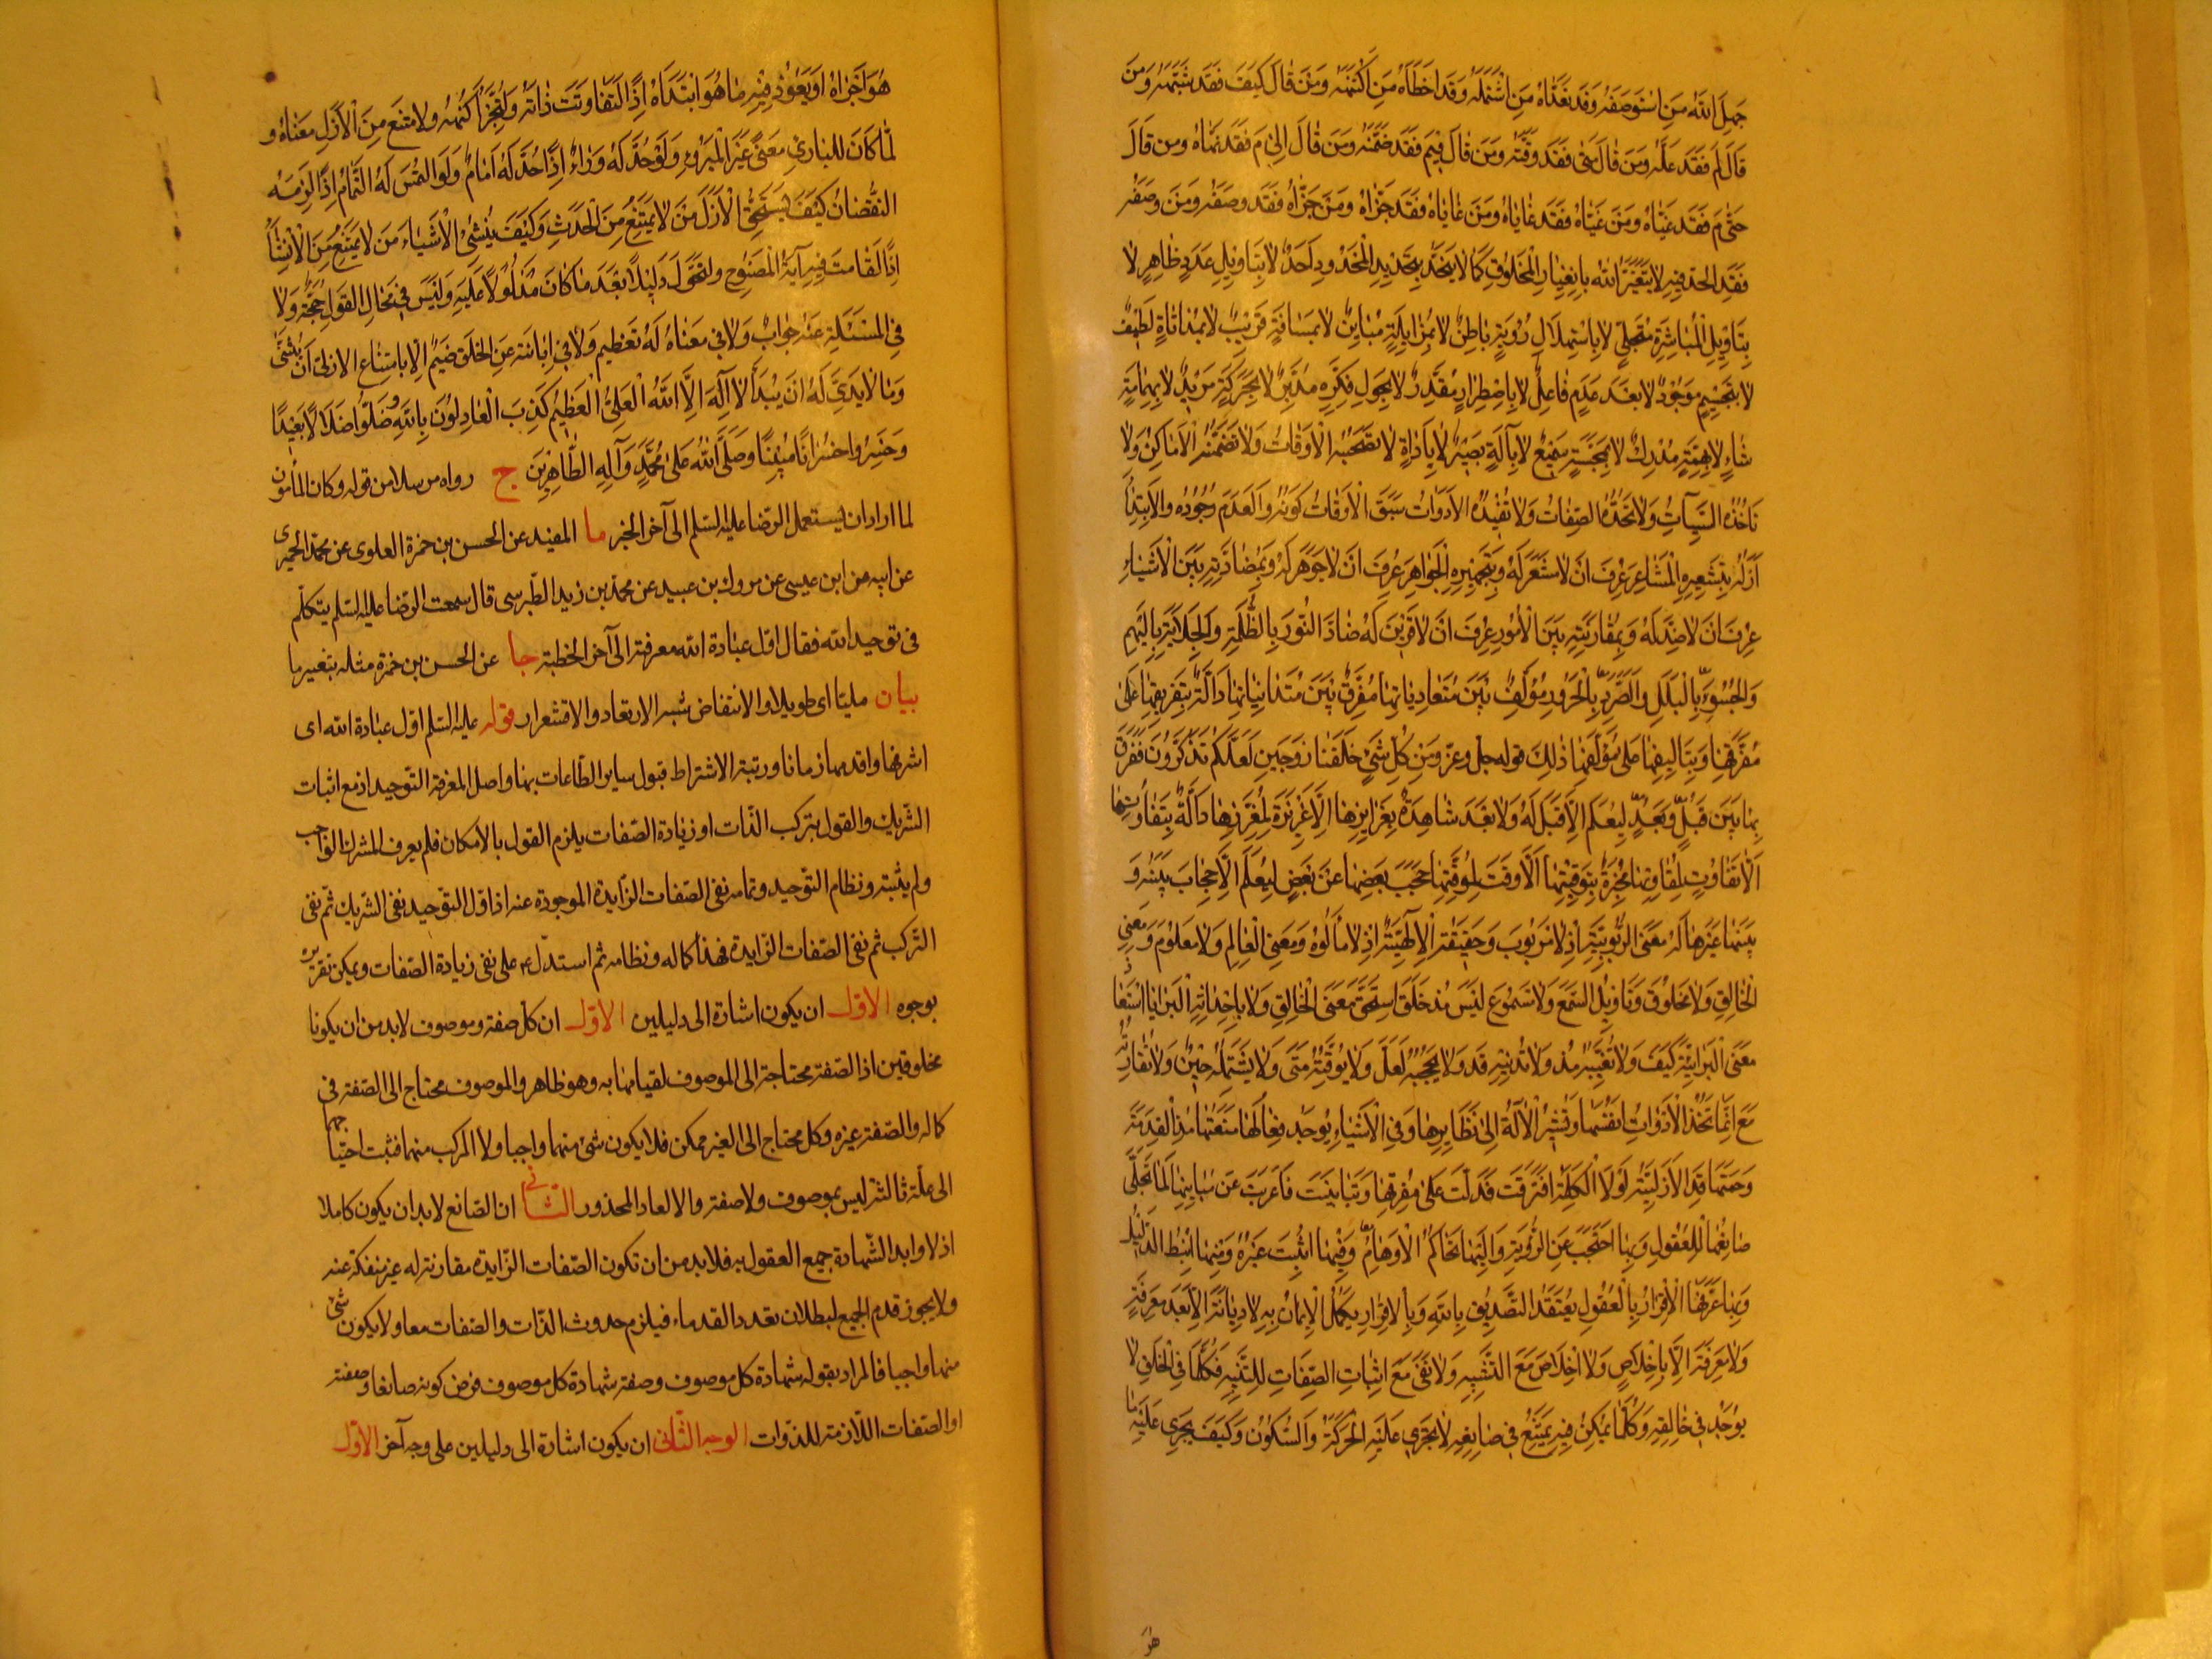 جهل الله من استوصفه وقد تعداه من اشتمله وقد اخطأه من اكتنهه ومن قال كيف فقد شبهه ومن
قال لم فقد علله ومن قال متى فقد وقته ومن قال فيم فقد ضمنه ومن قال الى م فقد نهاه ومن قال
حتى م فقد غياه ومن غياه فقد غاياه ومن غاياه فقد جزاه ومن جزاه فقد وصفه ومن وصفه
فقد الحد فيه لا يتغير الله بانغيار المخلوق كما لا ينحد بتحديد المحدود احد لا بتاويل عدد ظاهر لا
بتاويل المباشرة متجلي لا باستهلال رؤية باطن لا بمزايلة مباين لا بمسافة قريب لا بمداناة لطيف
لا بتجسيم موجود لا بعد عدم فاعل لا باضطرار مقدر لا بحول فكرة مدبر لا بحركة مريد لا بهمامة
شاء لا بهمة مدرك لا بمجسة سميع لا بآلة بصير لا باداة لا تصحبه الاوقات ولا تضمنه الاماكن ولا
تاخذه السنات ولا تحده الصفات ولا تفيده الادوات سبق الاوقات كونه والعدم وجوده والابتداء
ازله بتشعيره المشاعر عرف ان لا مشعر له وبتجهيره الجواهر عرف ان لا جوهر له وبمضادته بين الاشياء
عرف ان لا ضد له وبمقارنته بين الامور عرف ان لا قرين له ضاد النور بالظلمة والجلاية بالبهم
والجسو بالبلل والصرد بالحرور مؤلف بين متعادياتها مفرق بين متدانياتها دالة بتفريقها على
مفرقها وبتاليفها على مؤلفها ذلك قوله جل وعز ومن كل شئ خلقنا زوجين لعلكم تذكرون ففرق
بها بين قبل وبعد ليعلم الا قبل له ولا بعد شاهدة بغرايزها الا غريزة لمغرزها دالة بتفاوتها
الا تفاوت لمفاوتها مخبرة بتوقيتها الا وقت لموقتها حجب بعضها عن بعض ليعلم الا حجاب بينه و
بينها غيرها له معنى الربوبية اذ لا مربوب وحقيقة الالهية اذ لا مألوه ومعنى العالم ولا معلوم ومعنى
الخالق ولا مخلوق وتاويل السمع ولا مسموع ليس مذ خلق استحق معنى الخالق ولا باحداثه البرايا استفاد
معنى البرائية كيف ولا تغيبه مذ ولا تدنيه قد ولا يحجبه لعل ولا يوقته متى ولا يشتمله حين ولا تقارنه
مع انما تحد الادوات انفسها وتشير الآلة الى نظايرها وفي الاشياء يوجد فعالها منعتها مذ القدمة
وحمتها قد الازلية لولا الكلمة افترقت فدلت على مفرقها وتباينت فاعربت عن مباينها لما تجلى
صانعها للعقول وبها احتجب عن الرؤية واليها تحاكم الاوهام وفيها اثبت غيره ومنها انبط الدليل
وبها عرفها الاقرار بالعقول يعتقد التصديق بالله وبالاقرار يكمل الايمان به لا ديانة الا بعد معرفة
ولا معرفة الا باخلاص ولا اخلاص مع التشبيه ولا نفي مع اثبات الصفات للتنبيه فكلما في الخلق لا
يوجد في خالقه وكلما يمكن فيه يمتنع في صانعه لا تجري عليه الحركة والسكون وكيف يجري عليه ما
هو
هو اجراه او يعود فيه ما هو ابتداه اذا لتفاوتت ذاته ولتجزأ كنهه ولامتنع من الازل معناه و
لما كان للباري معنى غير المبروء ولو حد له وراء اذا حد له امام ولو التمس له التمام اذا لزمه
النقصان كيف يستحق الازل من لا يمتنع من الحدث وكيف ينشئ الاشياء من لا يمتنع من الانشاء
اذا لقامت فيه آية المصنوع ولتحول دليلا بعد ما كان مدلولا عليه وليس في محال القول حجة ولا
في المسئلة عنه جواب ولا في معناه له تعظيم ولا في ابانته عن الخلق ضيم الا بامتناع الازلي ان يثنى
وما لا بدئ له ان يبدأ لا اله الا الله العلي العظيم كذب العادلون بالله وضلوا ضلالا بعيدا
وخسروا خسرانا مبينا وصلى الله على محمد وآله الطاهرين ج رواه مرسلا من قوله وكان المأمون
لما اراد ان يستعمل الرضا عليه السلم الى آخر الخبر ما المفيد عن الحسن بن حمزة العلوى عن محمد الحميرى
عن ابيه عن ابن عيسى عن مروك بن عبيد عن محمد بن زيد الطبرسى قال سمعت الرضا عليه السلم يتكلم
فى توحيد الله فقال اول عبادة الله معرفته الى آخر الخطبة جا عن الحسن بن حمزة مثله بتغير ما
بيان مليا اى طويلا والانتفاض شبه الارتعاد والاقشعرار قوله عليه السلم اول عبادة الله اى
اشرفها واقدمها زمانا ورتبة لاشتراط قبول ساير الطاعات بها واصل المعرفة التوحيد اذ مع اثبات
الشريك والقول بتركب الذات او زيادة الصفات يلزم القول بالامكان فلم يعرف المشرك الواجب
ولم يثبته ونظام التوحيد وتمامه نفى الصفات الزايدة الموجودة عنه اذ اول التوحيد نفى الشريك ثم نفى
التركب ثم نفى الصفات الزايدة فهذا كماله ونظامه ثم استدل ع على نفى زيادة الصفات ويمكن تقريره
بوجوه الاول ان يكون اشارة الى دليلين الاول ان كل صفة وموصوف لا بد من ان يكونا
مخلوقين اذ الصفة محتاجة الى الموصوف لقيامها به وهو ظاهر والموصوف محتاج الى الصفة فى
كماله والصفة غيره وكل محتاج الى الغير ممكن فلا يكون شئ منهما واجبا ولا المركب منهما فثبت احتياجهما
الى علة ثالثة ليس بموصوف ولا صفة والا لعاد المحذور الثانى ان الصانع لا بد ان يكون كاملا
ازلا وابدا لشهادة جميع العقول به فلا بد من ان تكون الصفات الزايدة مقارنة له غير منفكة عنه
ولا يجوز قدم الجميع لبطلان تعدد القدماء فيلزم حدوث الذات والصفات معا ولا يكون شئ
منها واجبا فالمراد بقوله شهادة كل موصوف وصفة شهادة كل موصوف فرض كونه صانعا وصفته
او الصفات اللازمة للذوات الوجه الثانى ان يكون اشارة الى دليلين على وجه آخر الاول